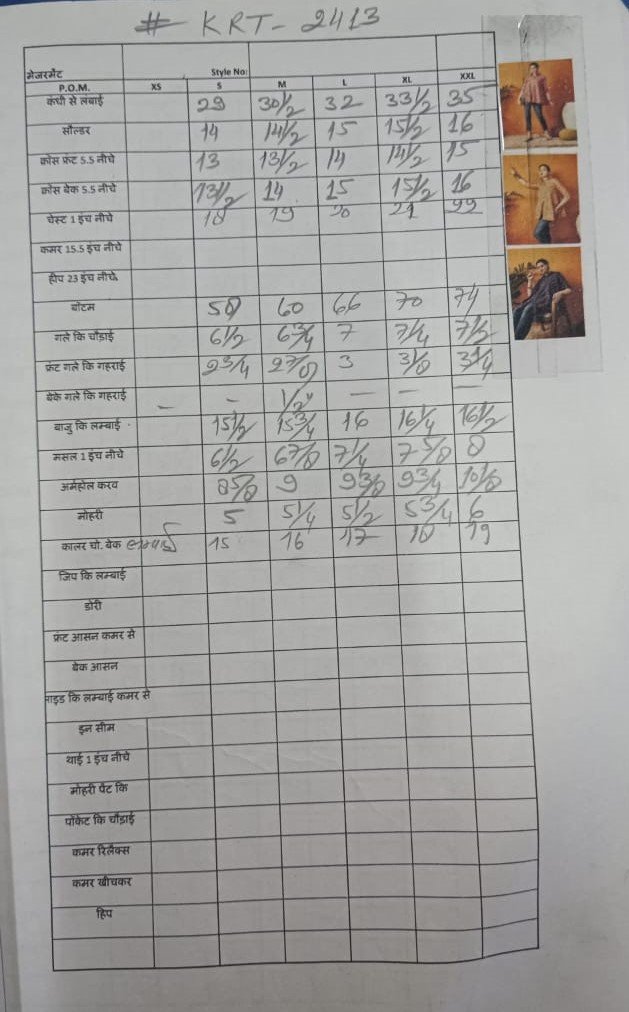 # KRT - 2413
मेजरमेंट Style No:
P.O.M. XS S M L XL XXL
कंधी से लंबाई 29 30 1/2 32 33 1/2 35
सोल्डर 14 14 1/2 15 15 1/2 16
क्रॉस फ्रंट 5.5 नीचे 13 13 1/2 14 14 1/2 15
क्रॉस बेक 5.5 नीचे 13 1/2 14 15 15 1/2 16
चेस्ट 1 इंच नीचे 18 19 20 21 22
कमर 15.5 इंच नीचे
हीप 23 इंच नीचे
बोटम 60 66 70 74
गले कि चौड़ाई 6 1/2 6 3/4 7 7 1/4 7 1/2
फ्रंट गले कि गहराई 2 3/4 2 7/8 3 3 1/8 3 1/4
बेके गले कि गहराई — - 1/2" — — —
बाजु कि लम्बाई 15 1/2 15 3/4 16 16 1/4 16 1/2
मसल 1 इंच नीचे 6 1/2 6 7/8 7 1/4 7 5/8 8
अर्महोल करव 8 5/8 9 9 3/8 9 3/4 10 1/8
मोहरी 5 5 1/4 5 1/2 5 3/4 6
कालर चो. बेक लम्बाई 15 16 17 18 19
जिप कि लम्बाई
डोरी
फ्रंट आसन कमर से
बेक आसन
साइड कि लम्बाई कमर से
इन सीम
थाई 1 इंच नीचे
मोहरी पेंट कि
पॉकेट कि चौड़ाई
कमर रिलैक्स
कमर खीचकर
हिप